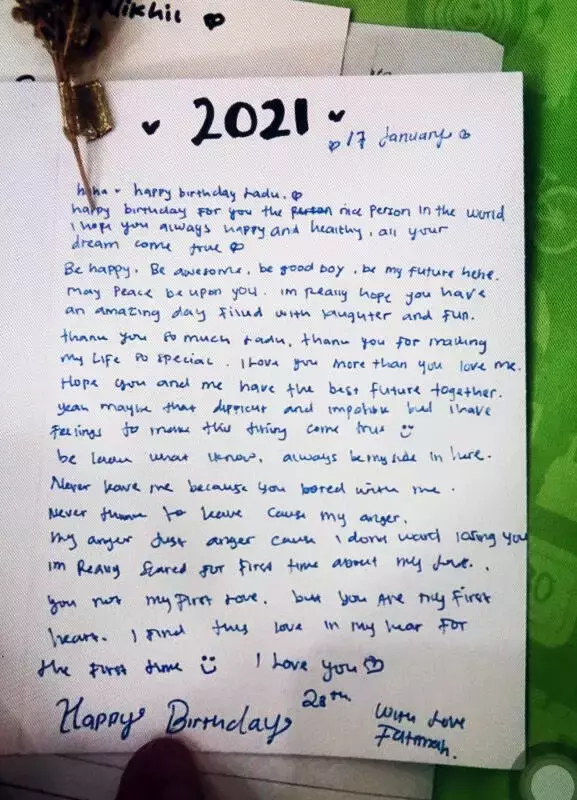 Nikhil
2021
17 January
haha - happy birthday Ladu.
happy birthday for you the person nice person in the world
I hope you always happy and healthy, all your
dream come true
Be happy. Be awesome, be good boy. be my future hehe.
may peace be upon you. im really hope you have
an amazing day filled with laughter and fun.
thank you so much Ladu, thank you for making
my life so special. I love you more than you love me.
Hope you and me have the best future together.
yeah maybe that difficult and but I have
feelings to make this thing come true
be what I know. always be my side in here.
Never leave me because you bored with me.
Never to leave cause my anger.
my anger Just anger cause I dont losing you
im Really Scared for First time about my love..
you not my first love. but you are my first
heart. I find this love in my hear for
the first time I Love you
Happy Birthday 28th
With Love
Fatimah.